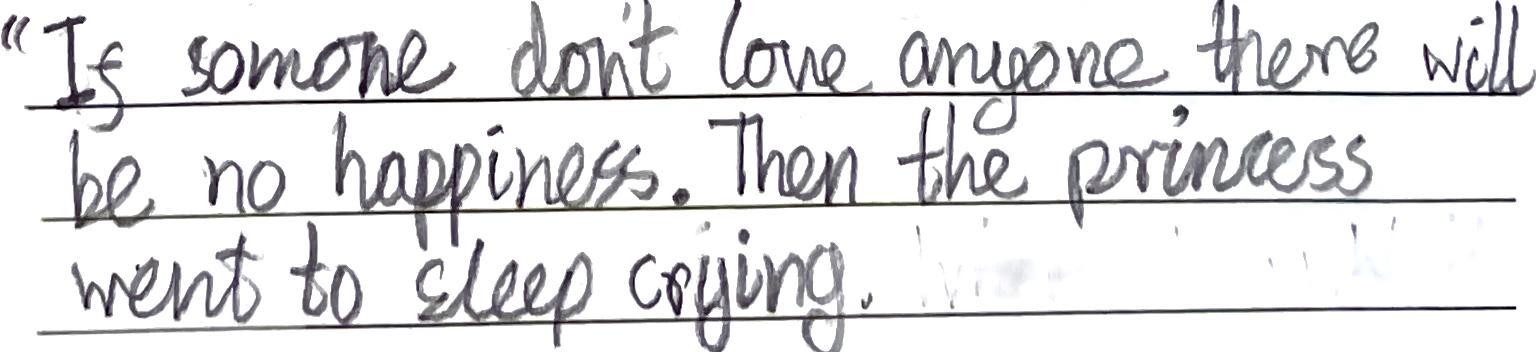 "If somone don't love anyone there will
be no happiness. Then the princess
went to sleep crying.